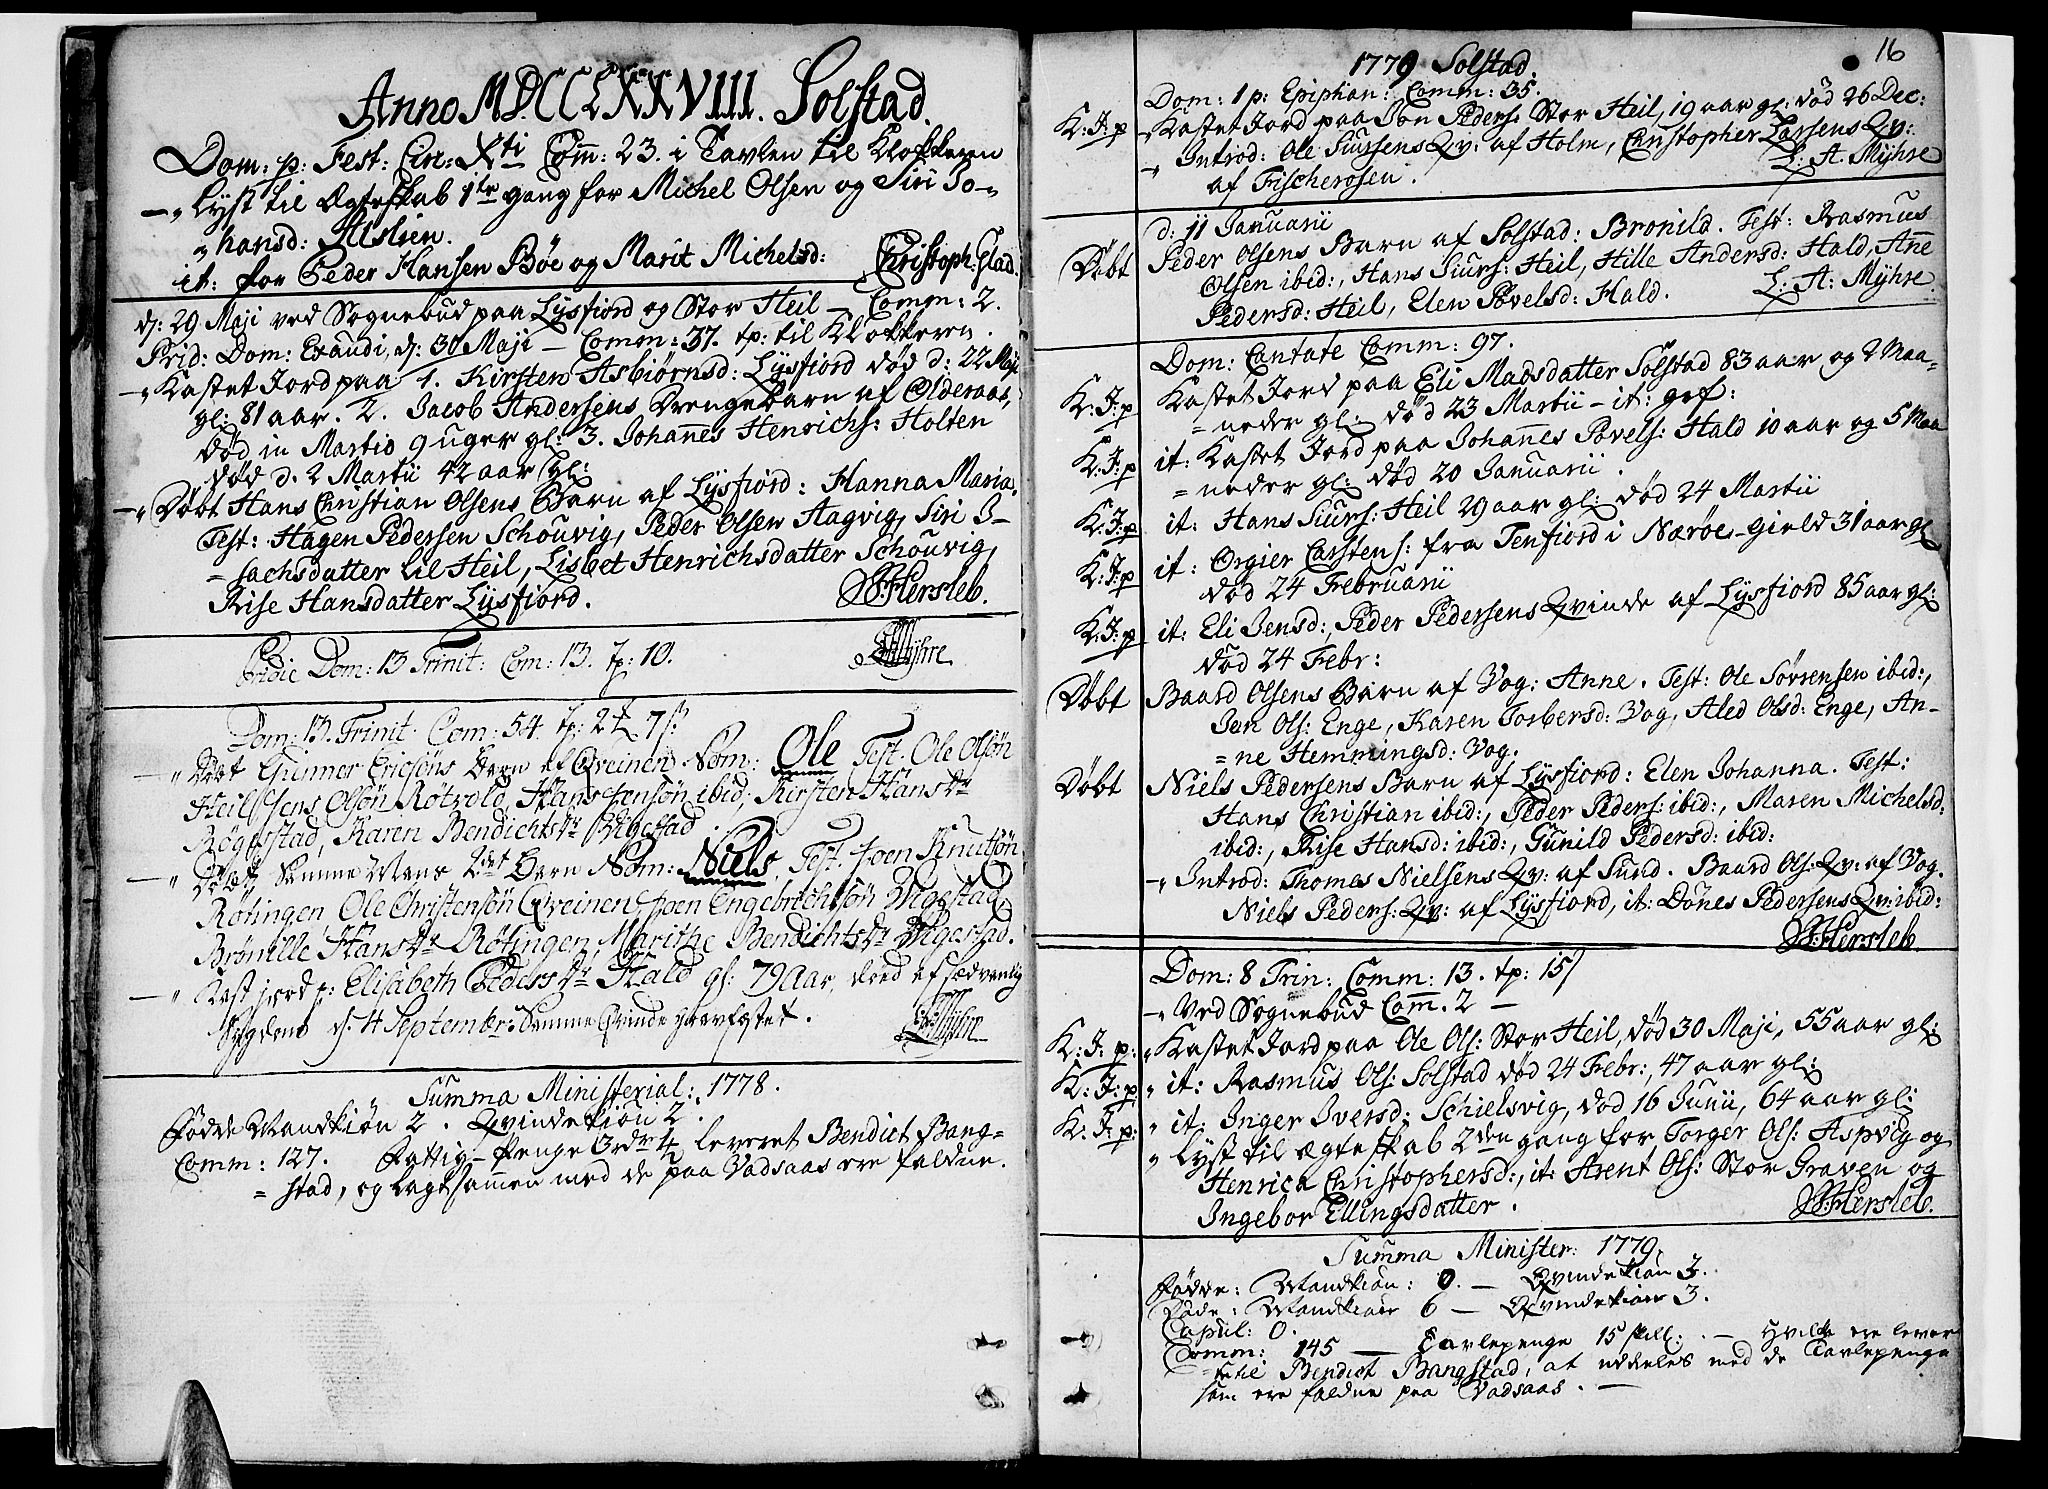 Anno MDCCLXXVIII. Solstad.
Dom: p: Fest: Circ: Xti Com̄: 23. i Tavlen til Klokkeren
Lyst til Ægteskab 1te gang for Michel Olsen og Siri Jo-
hansd:
it: for Peder Hansen Böe og Marit Michelsd: Christoph: Glad.
d: 29 Maji ved Sognebud paa Lysfiord og Stor Heil — Comm: 2.
Prid: Dom: Exaudi, d: 30 Maji — Comm: 37. tp: til Klokkeren.
Kastet Jord paa 1. Kirsten Asbiørnsd: Lysfiord død d: 22 Maji
gl: 81 aar. 2. Jacob Andersens Drengebarn af Olderaas,
død in Martio 9 uger gl: 3. Johan̄es Henrichs: Holten
død d. 2 Martii 42 aar gl:
Døbt Hans Christian Olsens Barn af Lysfiord: Hanna Maria.
Test: Hagen Pedersen Schouvig, Peder Olsen Aagvig, Siri I-
=sachsdatter lil Heil, Lisbet Henrichsdatter Schouvig,
Rise Hansdatter Lysfiord. Hersleb.
Pridie Dom: 13 Trinit: Com: 13. tp: 10. Myhre
Dom: 13. Trinit. Com: 54. tp: 7 ß
Døbt Gunner Ericsöns Barn af Qveinen Nom: Ole Test. Ole Olsön
Heil, Jens Olsön Rötvold, Hans Jensön ibid; Kirsten Hansdr
Röggestad, Karen Bendichtsdr Bigestad.
Døbt Samme Mans 2det Barn Nom: Niels. Test. Joen Knutsön
Rötingen, Ole Christensön Qveinen, Joen Engebrechtsön Biggestad,
Brönille Hansdr Rötingen, Marithe Bendichtsdr Bigestad.
Kast jord p: Elisabeth Pedersdr Hald gl: 79 Aar, død af sædvanlig
Sygdom d: 4 Septembr: Samme Qvinde gravfæstet. Myhre
Summa Ministerial: 1778.
Fødde Mandkiön 2. Qvindekiön 2.
Comm: 127. Fattig-Penge leveret Bendict Bang=
=stad, og lagt samen med de paa Vadsaas ere faldne.
16
1779 Solstad.
Dom: 1 p: Epiphan: Comm: 35.
K: J: p Kastet Jord paa Jon Peders: Stor Heil, 19 aar gl: død 26 Dec:
Introd: Ole Siursens Qv: af Holm, Christopher Larsens Qv:
af Fischerosen. L: A: Myhre
d: 11 Januarii
Døbt Peder Olsens Barn af Solstad: Bronild. Test: Rasmus
Olsen ibid:, Hans Siurs: Heil, Hille Andersd: Hald, An̄e
Pedersd: Heil, Elen Povelsd: Hald. L: A: Myhre.
Dom: Cantate Comm: 97.
K: J: p Kastet Jord paa Eli Madsdatter Solstad 83 aar og 2 Maa=
=neder gl: død 23 Martii — it: grf:
K: J: p it: Kastet Jord paa Johan̄es Povels: Hald 10 aar og 5 Maa
=neder gl: død 20 Januarii.
K: J: p it: Hans Siurs: Heil 29 aar gl: død 24 Martii
K: J: p it: Ørgier Carstens: fra Tenfiord i Narøe-gield 31 aar gl
død 24 Februarii
K: J: p it: Eli Jensd:, Peder Pedersens Qvinde af Lysfiord 85 aar gl:
død 24 Febr:
Døbt Baard Olsens Barn af Vog: Anne. Test: Ole Sørrensen ibid:,
Jen Ols: Enge, Karen Torbersd: Vog, Aled Olsd: Enge, An-
=ne Hemmingsd: Vog.
Døbt Niels Pedersens Barn af Lysfiord: Elen Johanna. Test:
Hans Christian ibid:, Peder Peders: ibid:, Maren Michelsd:
ibid:, Rise Hansd: ibid:, Gunild Pedersd: ibid:
Introd: Thomes Nielsens Qv: af Sund. Baard Ols: Qv: af Vog.
Niels Peders: Qv: af Lysfiord, it: Dønes Pedersens Qv: ibid:
Hersleb.
Dom: 8 Trin: Comm: 13. tp: 15 ß
Ved Sognebud Com̄. 2 —
K: J: p: Kastet Jord paa Ole Ols: Stor Heil, død 30 Maji, 55 aar gl:
K: J: p it: Rasmus Ols: Solstad død 24 Febr:, 47 aar gl:
K: J: p: it: Inger Iversd: Schielsvig, død 16 Junii, 64 aar gl:
Lyst til ægteskab 2den gang for Torger Ols: Aspvig og
Henrica Christophersd:, it: Arent Ols: Stor Graven og
Ingebor Ellingsdatter. Hersleb.
Summa Minister: 1779.
Fødde: Mandkiön: 0. — Qvindekiön 3.
Døde: Mandkiön 6 — Qvindekiön 3.
Copul: 0.
Comm: 145 — Tavlepenge 15 skill: — Hvilke ere lever
=te til Bendict Bangstad, at uddeles med de Tavlepenge
som ere faldne paa Vadsaas. —